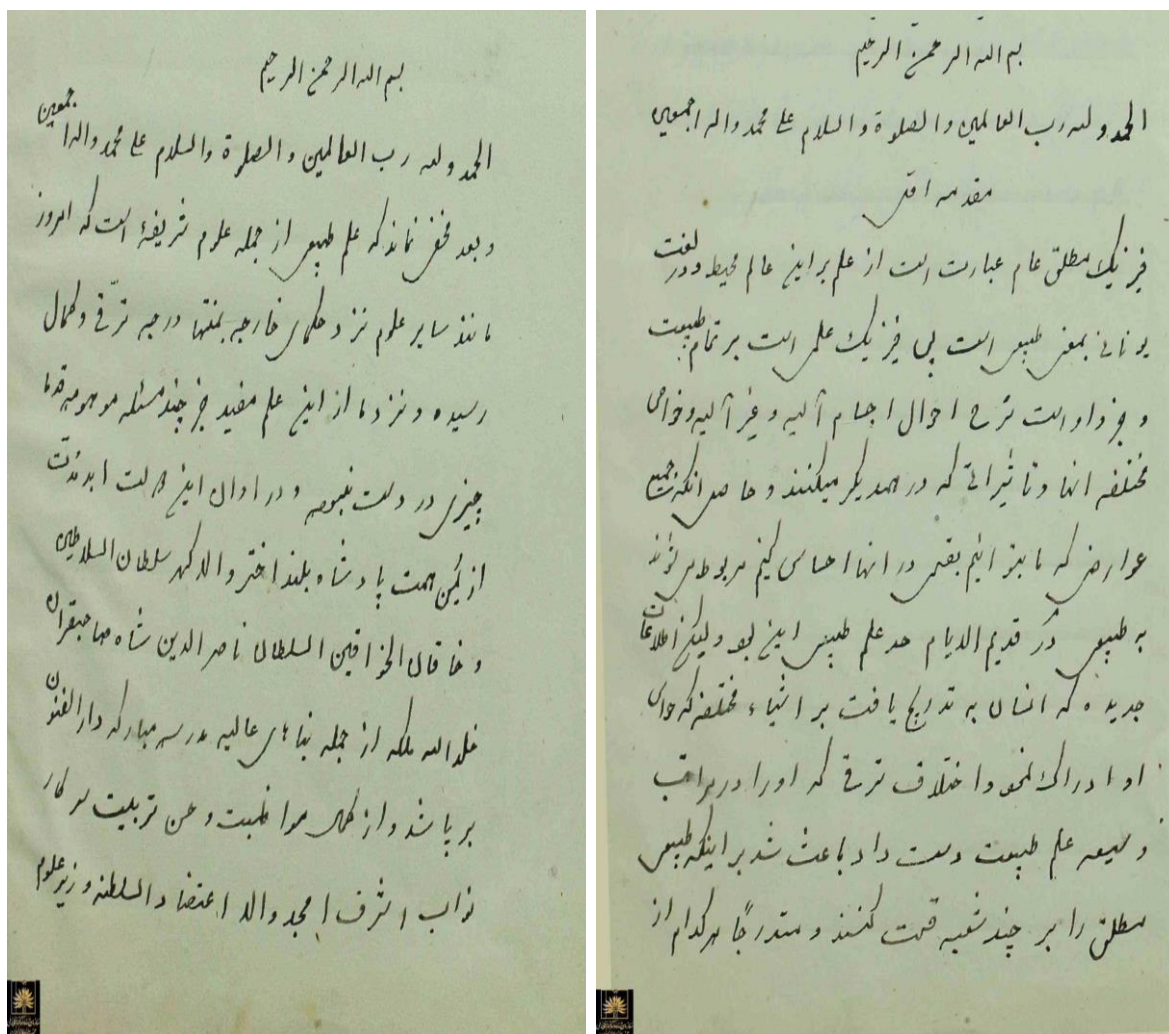 بسم الله الرحمن الرحیم
الحمد لله رب العالمین والصلوة والسلام علی محمد واله اجمعین
مقدمه اول
فیزیک مطلق عام عبارت است از علم بر این عالم محیط و در لغت
یونانی بمعنی طبیعی است پس فیزیک علمی است بر تمام طبیعت
و جزو او است شرح احوال اجسام آلیه و غیر آلیه و خواص
مختلفه انها و تاثیراتی که در همدیگر میکنند و حاصل انکه جمیع
عوارضی که ما بتوانیم بقسمی در انها احساس کنیم مربوط میشوند
به طبیعی در قدیم الایام حد علم طبیعی این بود ولیکن اطلاعات
جدیده که انسان به تدریج یافت بر اشیاء مختلفه که حواس
او ادراک نمود و اختلاف ترقی که او را در مراتب
وسیعه علم طبیعت دست داد باعث شد بر اینکه طبیعی
مطلق را بر چند شعبه قسمت کنند و متدرجاً هر کدام از
بسم الله الرحمن الرحیم
الحمد لله رب العالمین والصلوة والسلام علی محمد واله اجمعین
و بعد مخفی نماند که علم طبیعی از جمله علوم شریفهٔ است که امروز
مانند سایر علوم نزد حکمای خارجه بمنتها درجه ترقی و کمال
رسیده و نزد ما از این علم مفید جز چند مسئله موهومه قدما
چیزی در دست نبود و در اوان این دولت ابدمدت
از یمن همت پادشاه بلند اختر والا گهر سلطان السلاطین
و خاقان الخواقین السلطان ناصر الدین شاه صاحبقران
خلد الله ملکه از جمله بناهای عالیه مدرسه مبارکه دار الفنون
بر پا شد و از کمال مواظبت و حسن تربیت سرکار
نواب اشرف امجد والا اعتضاد السلطنه وزیر علوم